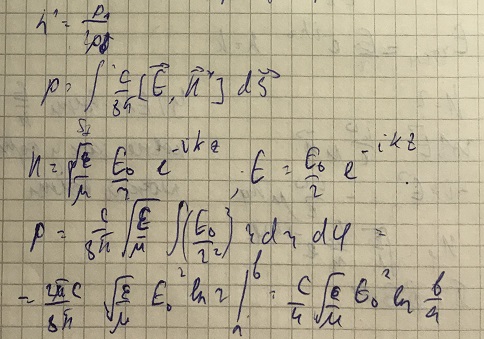 h" = P₁ / 2P
P = ∫ c/8π [E⃗, H⃗*] dS⃗
H = √(ε/μ) E₀/r e^(-ikz) ; E = E₀/r e^(-ikz).
P = c/8π √(ε/μ) ∫ (E₀²/r²) r dr dφ =
= 2πc/8π √(ε/μ) E₀² ln r |ₐᵇ = c/4 √(ε/μ) E₀² ln b/a